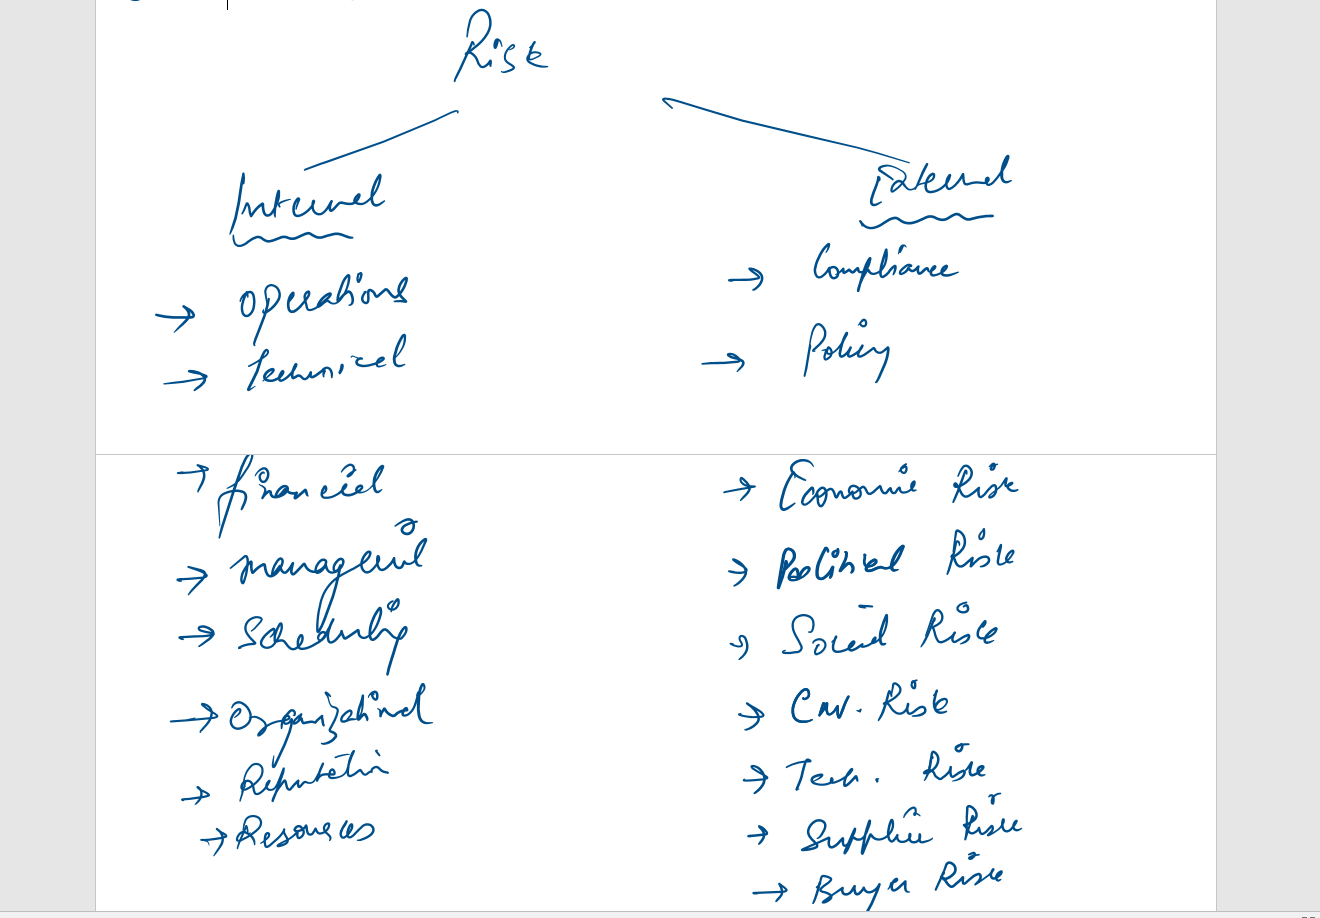 Risk
Internal
External
→ Operations
→ Technical
→ Compliance
→ Policy
→ financial
→ managerial
→ Scheduling
→ Organizational
→ Reputation
→ Resources
→ Economic Risk
→ Political Risk
→ Social Risk
→ Env. Risk
→ Tech. Risk
→ Supplier Risk
→ Buyer Risk